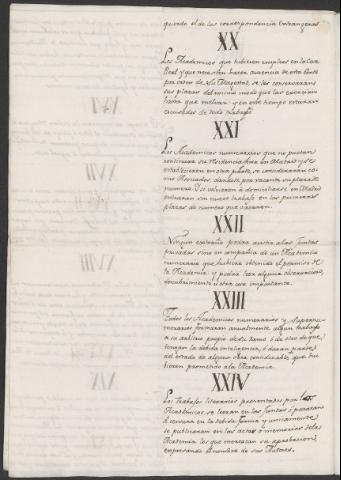 quando el de las correspondencia Extrangeras
XX
Los Academicos que tubiesen empleo en la Casa
Real y que necesiten hacer ausencia de esta Corte
por orden de su Magestad, se les conservaran
sus plazas del mismo modo que las exercian
hasta que vuelvan: y en este tiempo estaran
escusados de todo trabajo.
XXI
Los Academicos numerarios que no puedan
continuar su residencia fixa en Madrid y se
establecieren en otra parte, se consideraran co-
mo Honorarios, dandose por vacante su plaza de
numero. Si se volvieren à domiciliar en Madrid
entraran sin nuevo trabajo en las primeras
plazas de numero que vacaren.
XXII
Ningun extraño podra asistir a las Juntas
privadas sino en compañia de un Academico
numerario que hubiese obtenido el permiso de
la Academia: y podrá leer alguna disertacion,
descubrimiento ù otra cosa importante.
XXIII
Todos los Academicos numerarios y supernu-
merarios formaran anualmente algun trabajo
a su arbitrio propio de su ramo ò de otro de que
tengan la debida inteligencia, ò daran parte
del estado de alguna obra considerable que tu-
biesen prometido ala Academia.
XXIV
Los trabajos literarios presentados por los
Academicos se leeran en las Juntas ò pasaran
à censura en la debida forma y unicamente
se publicaran en las actas ò memorias dela
Academia los que merezcan su aprobacion,
expresando el nombre de sus Autores.